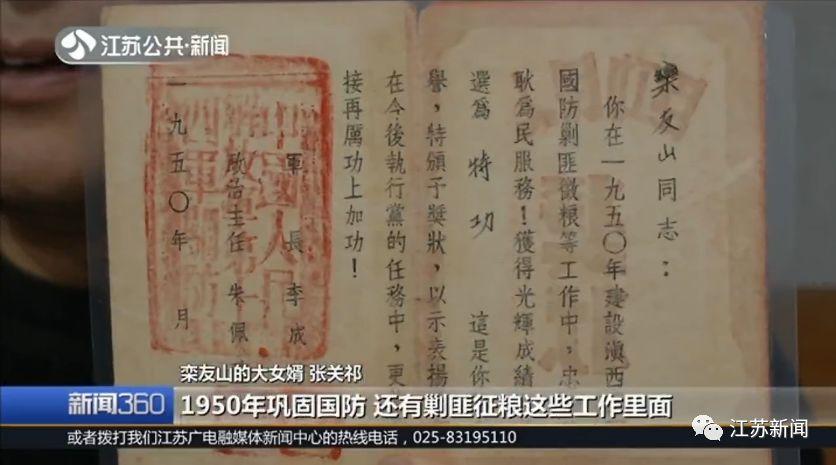 江苏公共·新闻
欒友山同志：
你在一九五〇年建設滇西
國防剿匪徵粮等工作中，忠
耿爲民服務！獲得光輝成績
選爲 特功 這是你
譽，特頒予獎狀，以示表揚
在今後執行黨的任務中，更
接再厲功上加功！
軍長 李成
政治主任 朱佩
一九五〇年 月
栾友山的大女婿 张关祁
新闻360
1950年巩固国防 还有剿匪征粮这些工作里面
或者拨打我们江苏广电融媒体新闻中心的热线电话，025-83195110
江苏新闻